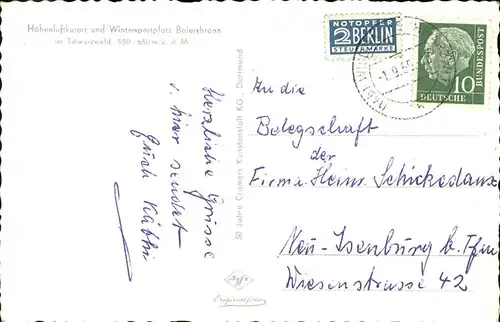 Höhenluftkurort und Wintersportplatz Baiersbronn
im Schwarzwald 550 - 650 m ü. d. M
NOTOPFER
2 BERLIN
STEUERMARKE
-1.9.55
DEUTSCHE
BUNDESPOST
10
Herzliche Grüsse
v. hier sendet
50 Jahre Cramers Kunstanstalt KG., Dortmund
An die
Belegschaft
der
Firma Heinr. Schickedanz
Neu-Isenburg b. Ffm
Wiesenstrasse 42
Originalfoto